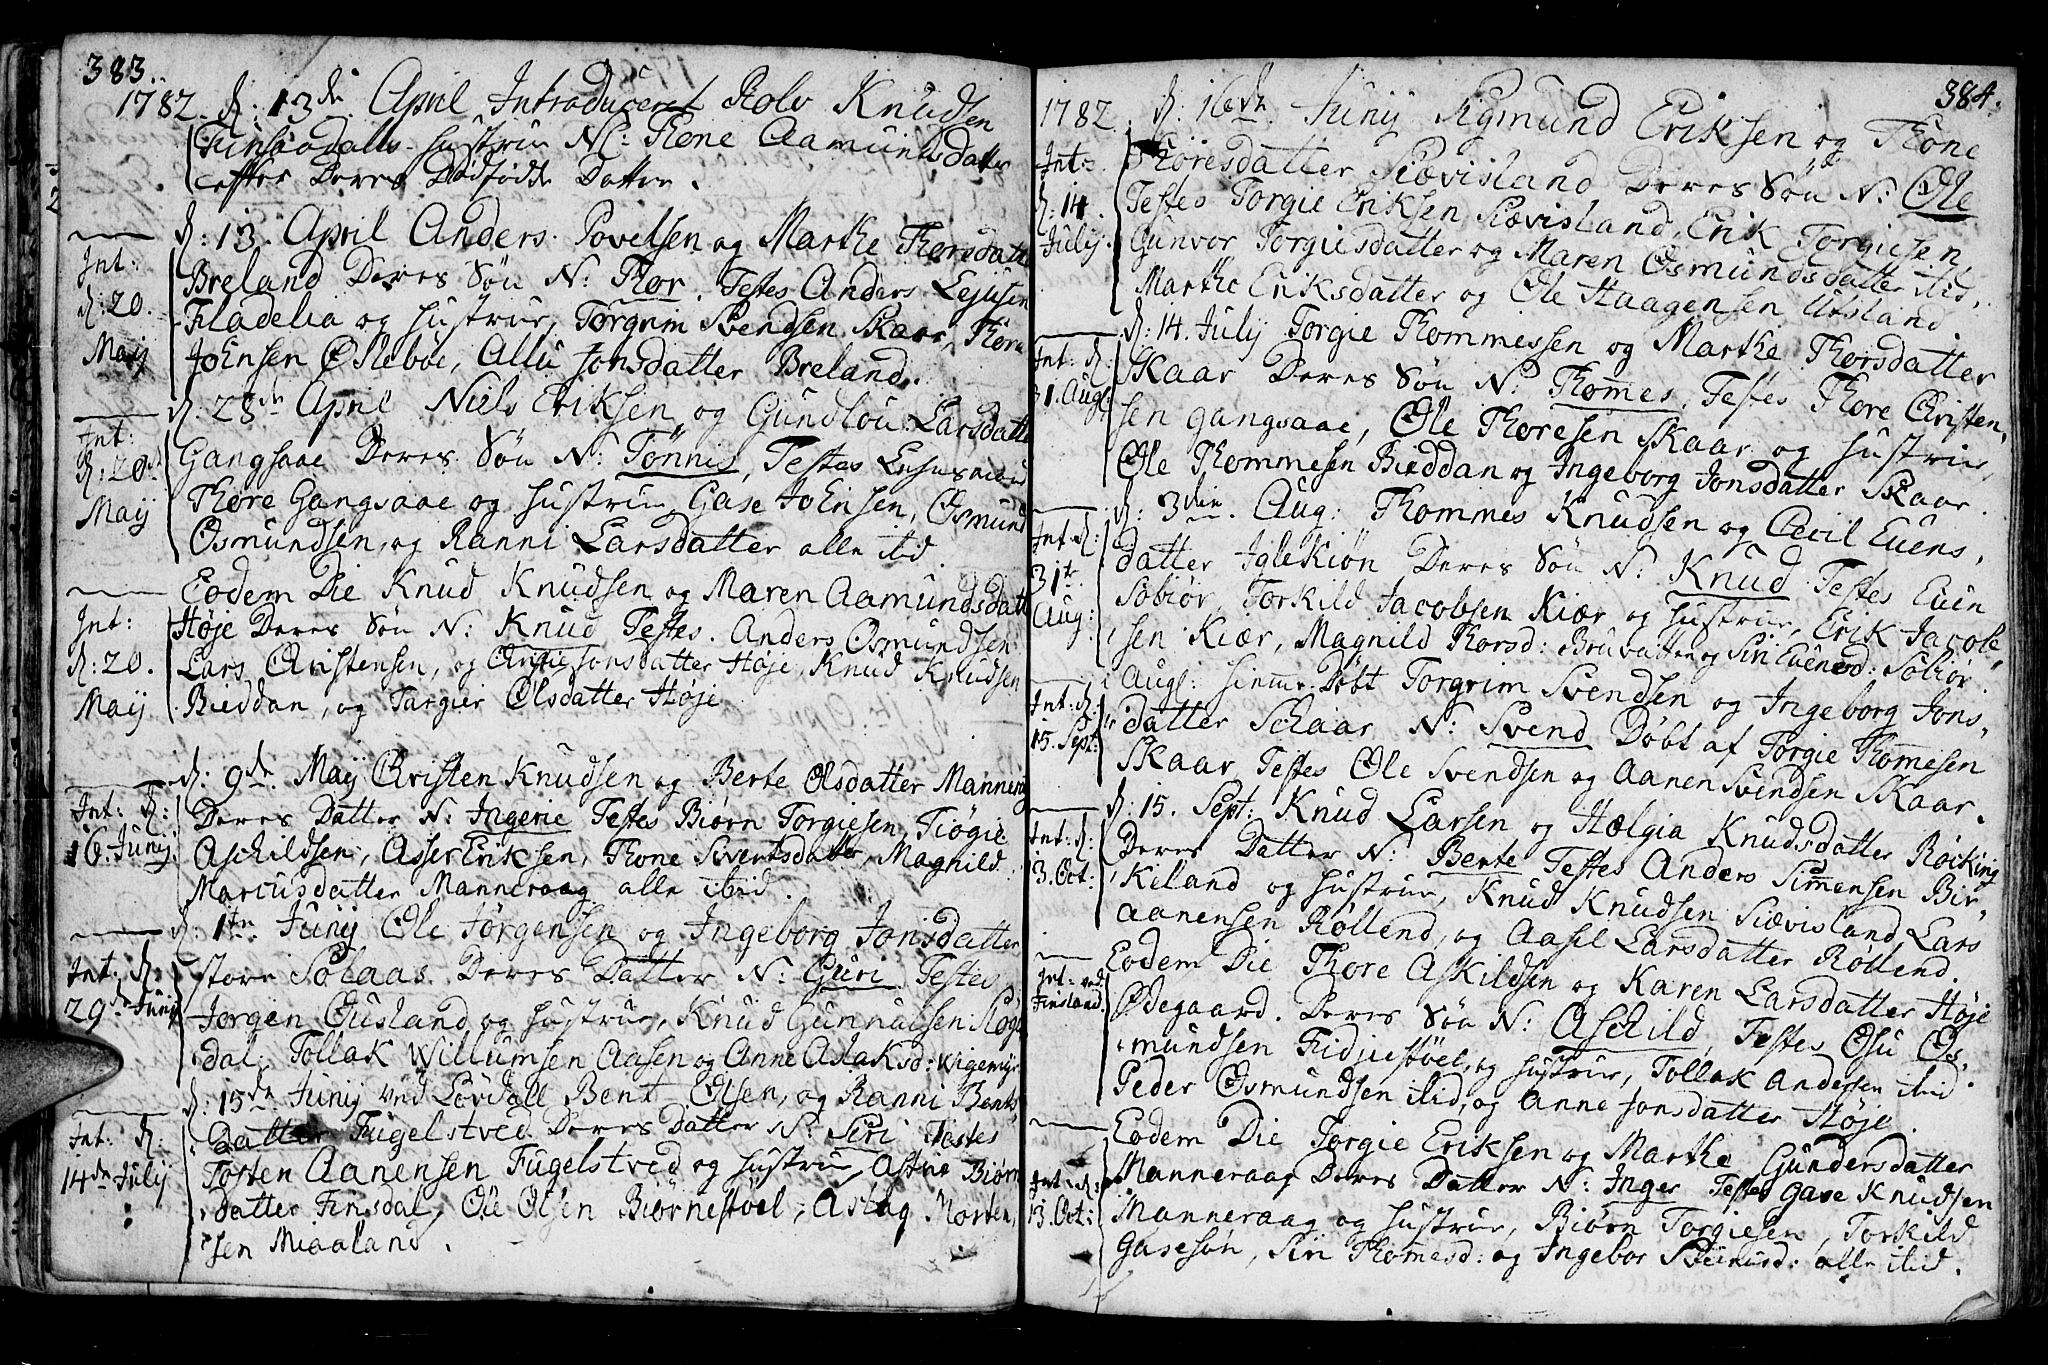 383.
1782. d: 13de April Introduceret Rolv Knudsen
Finsaadalls hustrue N: Tone Aamundsdatter
efter Deres Dødfødde Datter.
d: 13. April Anders Povelsen og Marthe Thorsdatt
Int:
d: 20.
Maij
Breland Deres Søn N: Thor. Testes Anders
Filadelia og hustrue, Torgrim Svendsen Skaar, Thore
Johnsen Øsleboe, Allu Jonsdatter Breland.
d: 28de April Niels Eriksen og Gundlou Larsdatte
Int:
d: 20de
Maij
Gangsaae Deres Søn N: Tønnis, Testes Lehnsmand
Thore Gangsaae og hustrue Gase Johnsen, Osmund
Osmundsen, og Ranni Larsdatter alle ibid
Eodem Die Knud Knudsen og Maren Aamundsdatt
Int:
d: 20.
Maij
Høje Deres Søn N: Knud Testes. Anders Osmundsen
Lars Christensen, og Jonsdatter Høje, Knud Knudsen
Bieddan, og Targier Olsdatter Høje
d: 9de Maij Christen Knudsen og Berte Olsdatter Mannerag
Int: d:
16. Junij
Deres Datter N: Ingerie Testes Biørn Torgiesen, Tiøgie
Aschildsen, Asser Eriksen, Thone Svendsdatter, Magnild
Marcusdatter Manneraag alle ibid.
d: 1te Junij Ole Jørgensen og Ingeborg Jonsdatter
Int: d:
29de Junij
store Solaas Deres Datter N: Guri Testes
Jørgen Ousland og hustrue, Knud Gunnufsen
dal, Tollak Willumsen Aasen og Anne Aslaksd:
d: 15de Junij ved Løvdall Bent Olsen, og Ranni Bents
Int: d:
14de July
Datter Fugelstved Deres Datter N: Siri Testes
Tosten Aanensen Fugelstved og hustrue, Astrie Biørn
Datter Finsdal, Ole Olsen Biørnestøel, Aslag Morten,
sen Miaaland.
384.
1782. d: 16de Junij Sigmund Eriksen og Thone
Int:
d: 14.
July.
Thoresdatter Siævisland Deres Søn N: Ole
Testes Torgie Eriksen Siævisland, Erik Torgiesen
Gunvor Torgiesdatter og Maren Osmundsdatter ibid,
Marthe Eriksdatter og Ole Haagensen Udsland.
d: 14. July Torgie Thommessen og Marthe Thorsdatter
Int: d:
31. Aug:
Skaar Deres Søn N: Thomes. Testes Thore Christen,
sen Gangsaae, Ole Thoresen Skaar og hustrue,
Ole Thommesen Bieddan og Ingeborg Jonsdatter Skaar.
d: 3die Aug: Thommes Knudsen og Cecil Euens,
Int: d:
31te
Aug:
datter Iglekiøn Deres Søn N: Knud Testes Euen
Søbiør, Torkild Jacobsen Kiær og hustrue, Erik Jacob
sen Kiær, Magnild Thorsd: Brubatten og Siri Euensd: Søbiør
Aug: hieme Døbt Torgrim Svendsen og Ingeborg Jons,
Int: d:
15. Sept:
datter Schaar N: Svend Døbt af Torgie Thomesen
Skaar Testes Ole Svendsen og Aanen Svendsen Skaar.
d: 15. Sept: Knud Larsen og Hælgia Knudsdatter Røiking
Int: d:
13. Oct:
Deres Datter N: Berte Testes Anders Simensen Bir
keland og hustrue, Knud Knudsen Siævisland, Lars
Aanensen Røllend, og Aasel Larsdatter Røllend.
Eodem Die Thore Askildsen og Karen Larsdatter Høje
Int: ved
Finsland.
Ødegaard. Deres Søn N: Aschild, Testes Osu Os,
mundsen Fidjestøel, og hustrue, Tollak Andersen ibid
Peder Osmundsen ibid, og Anne Jonsdatter Høje.
Eodem Die Torgie Eriksen og Marthe Gundersdatter
Int: d:
13. Oct:
Manneraag Deres Datter N: Inger Testes Gase Knudsen
Manneraag og hustrue, Biørn Torgiesen, Torkild
Gasesøn, Siri Thomesd: og Ingebor alle ibid.